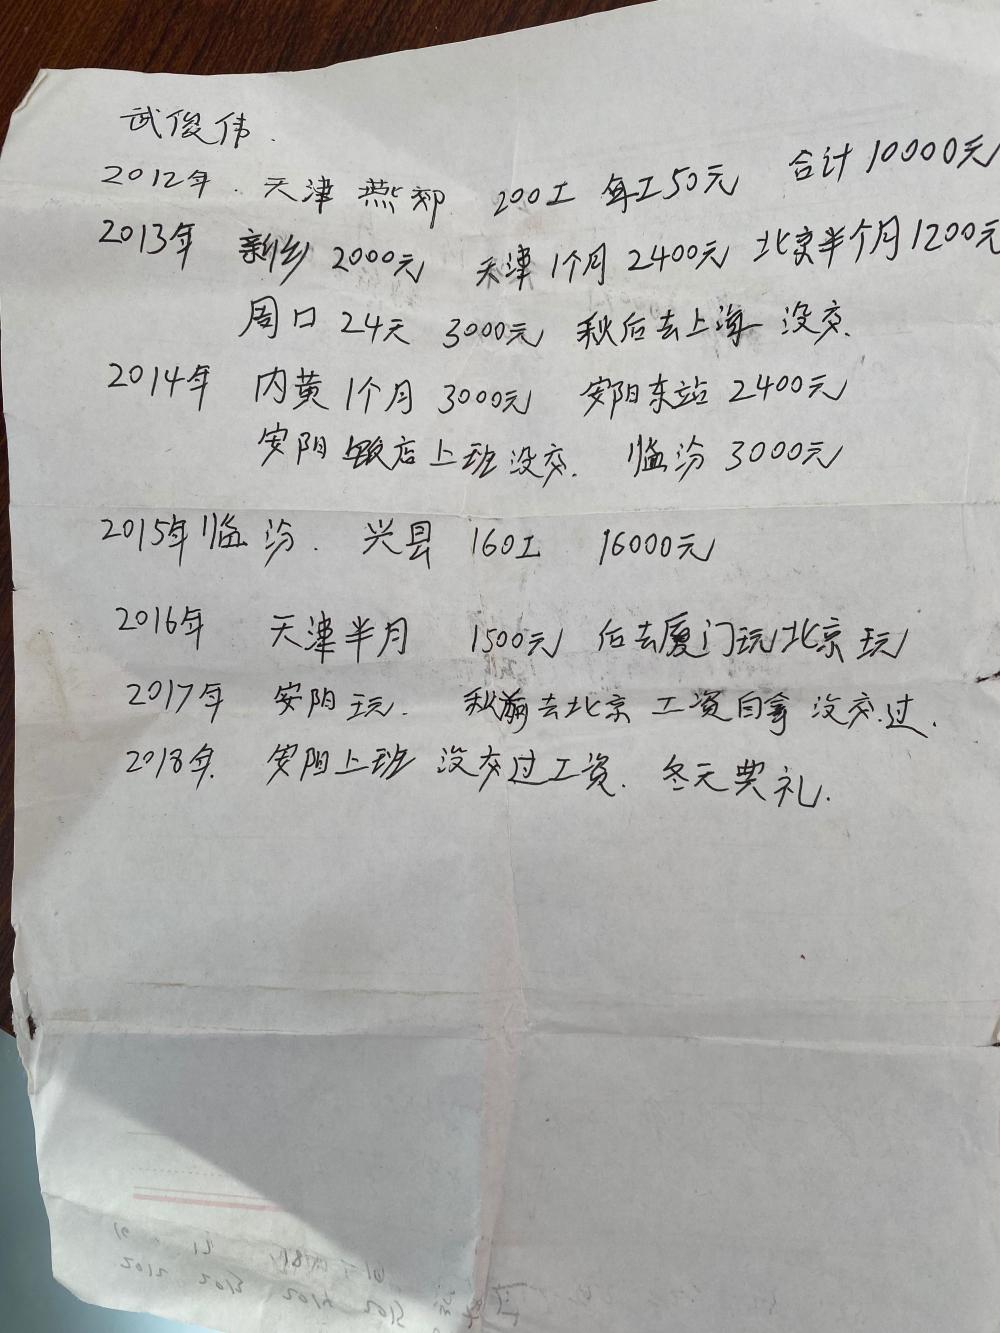 武俊伟.
2012年. 天津 燕郊 200工 每工50元 合计10000元
2013年 新乡 2000元 天津1个月 2400元 北京半个月1200元
周口 24天 3000元 秋后去上海 没交.
2014年 内黄1个月 3000元 安阳东站 2400元
安阳 饭店上班没交. 临汾 3000元
2015年临汾. 兴县 160工 16000元
2016年 天津半月 1500元 后去厦门玩北京玩
2017年 安阳玩. 秋前去北京 工资自拿 没交过.
2018年. 安阳上班 没交过工资. 冬天典礼.